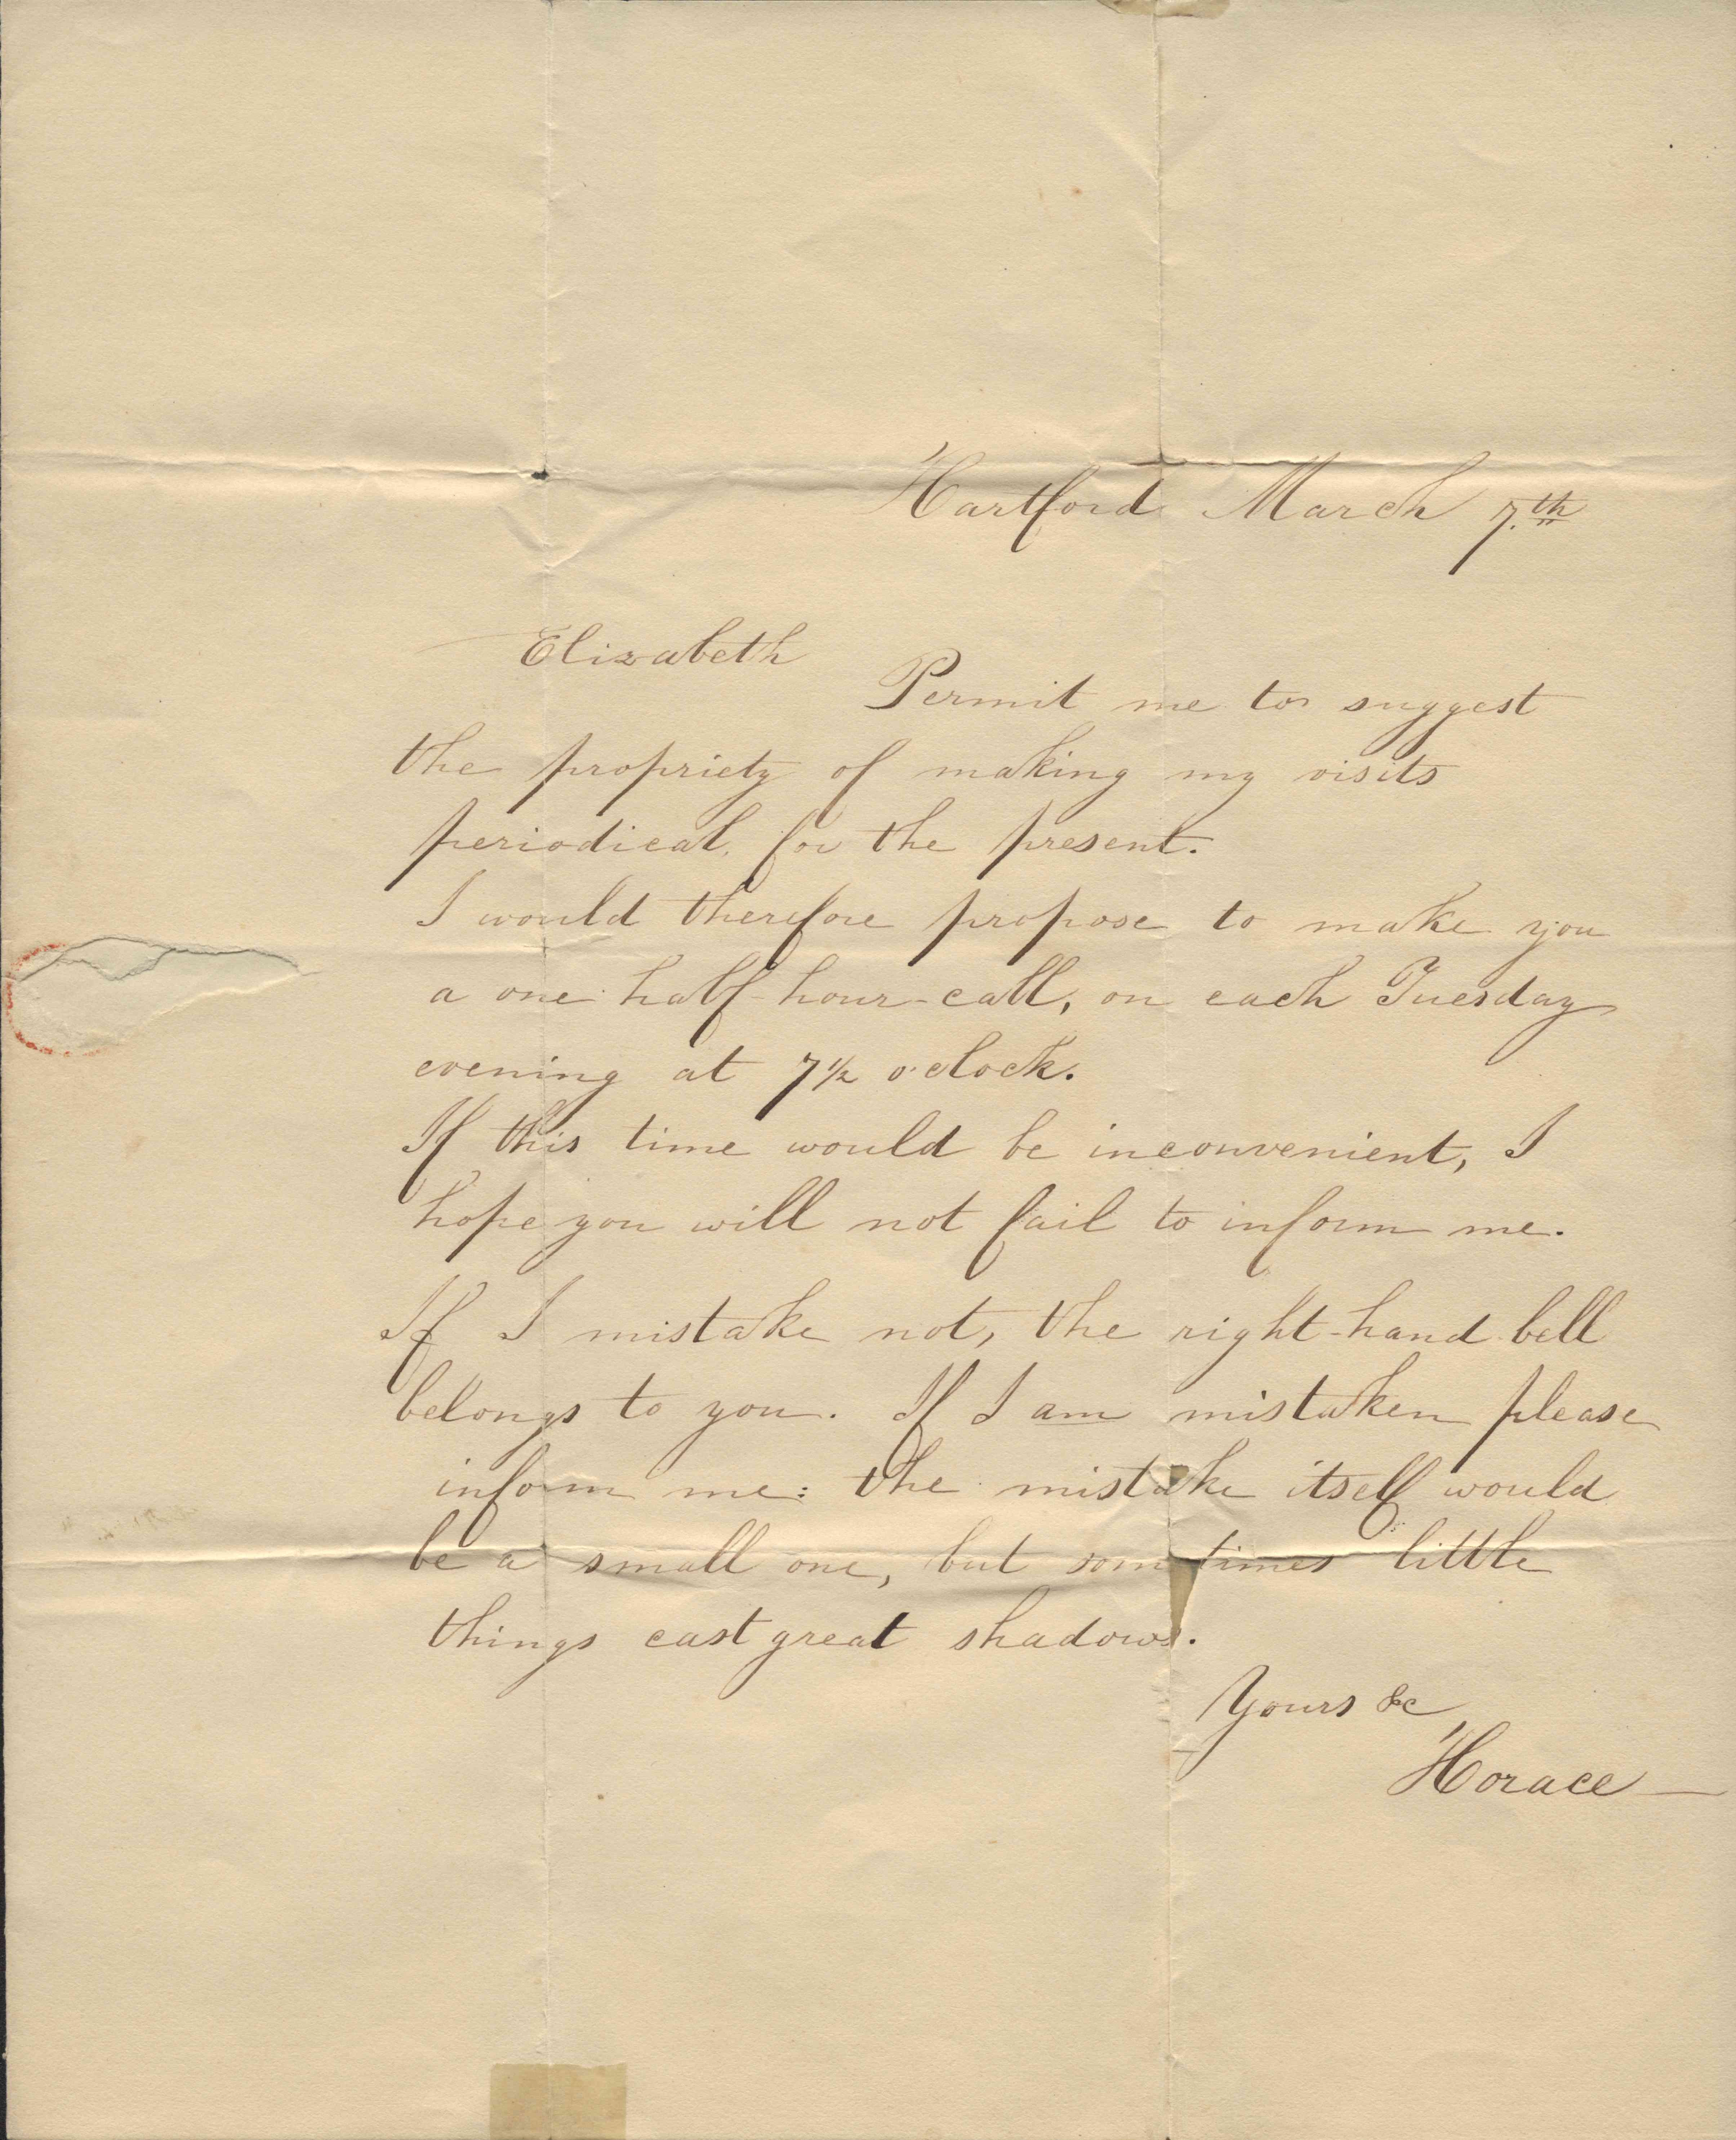 Hartford March 7.th
Elizabeth
Permit me to suggest
the propriety of making my visits
periodical, for the present.
I would therefore propose to make you
a one half-hour-call, on each Tuesday
evening at 7½ o'clock.
If this time would be inconvenient, I
hope you will not fail to inform me.
If I mistake not, the right-hand bell
belongs to you. If I am mistaken please
inform me: the mistake itself would
be a small one, but sometimes little
things cast great shadows.
Yours &c
Horace—